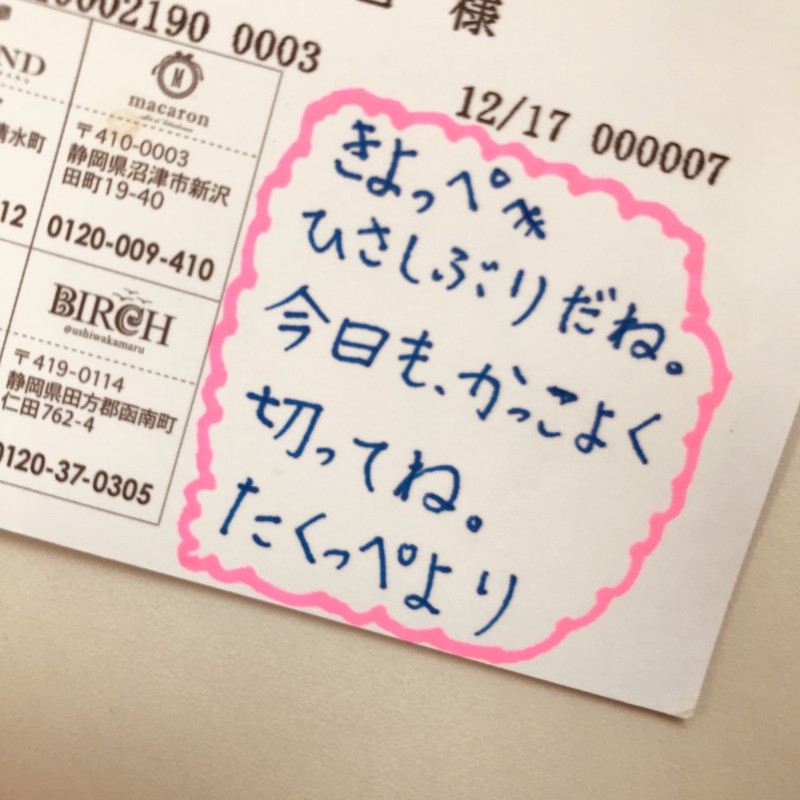 0002190 0003
様
12/17 000007
ND
清水町
12
M
macaron
〒410-0003
静岡県沼津市新沢
田町19-40
0120-009-410
BIRCH
@ushiwakamaru
〒419-0114
静岡県田方郡函南町
仁田762-4
0120-37-0305
きよっぺ
ひさしぶりだね。
今日も、かっこよく
切ってね。
たくっぺより